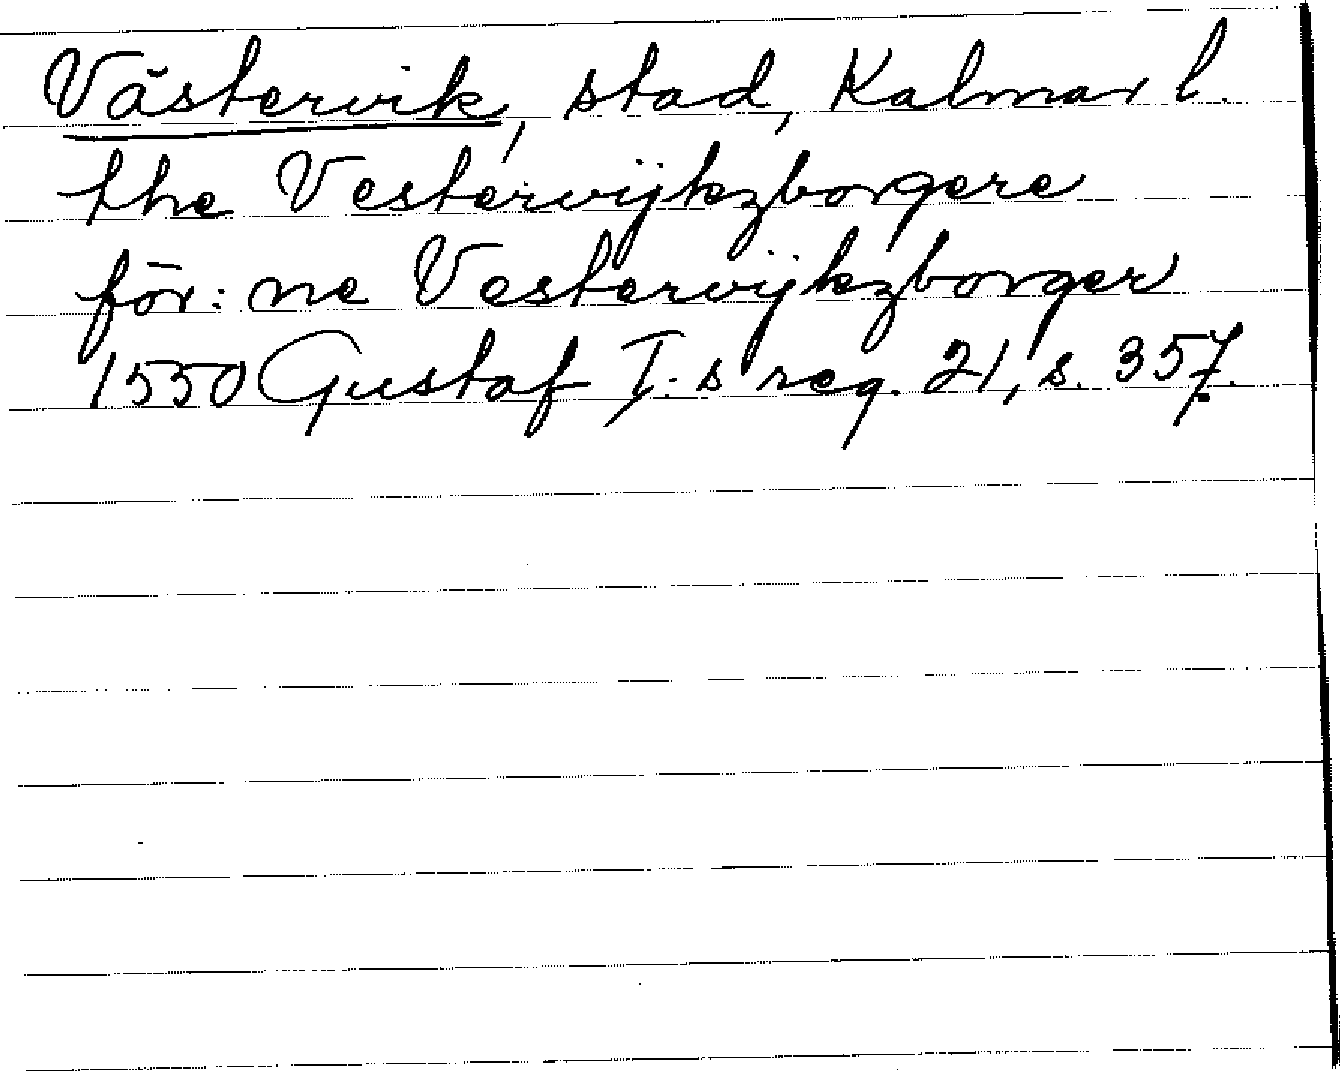 Västervik, stad, Kalmar l.
the Vestervijkzborgere
för: ne Vestervijkzborger
1550 Gustaf I:s reg. 21, s. 357.